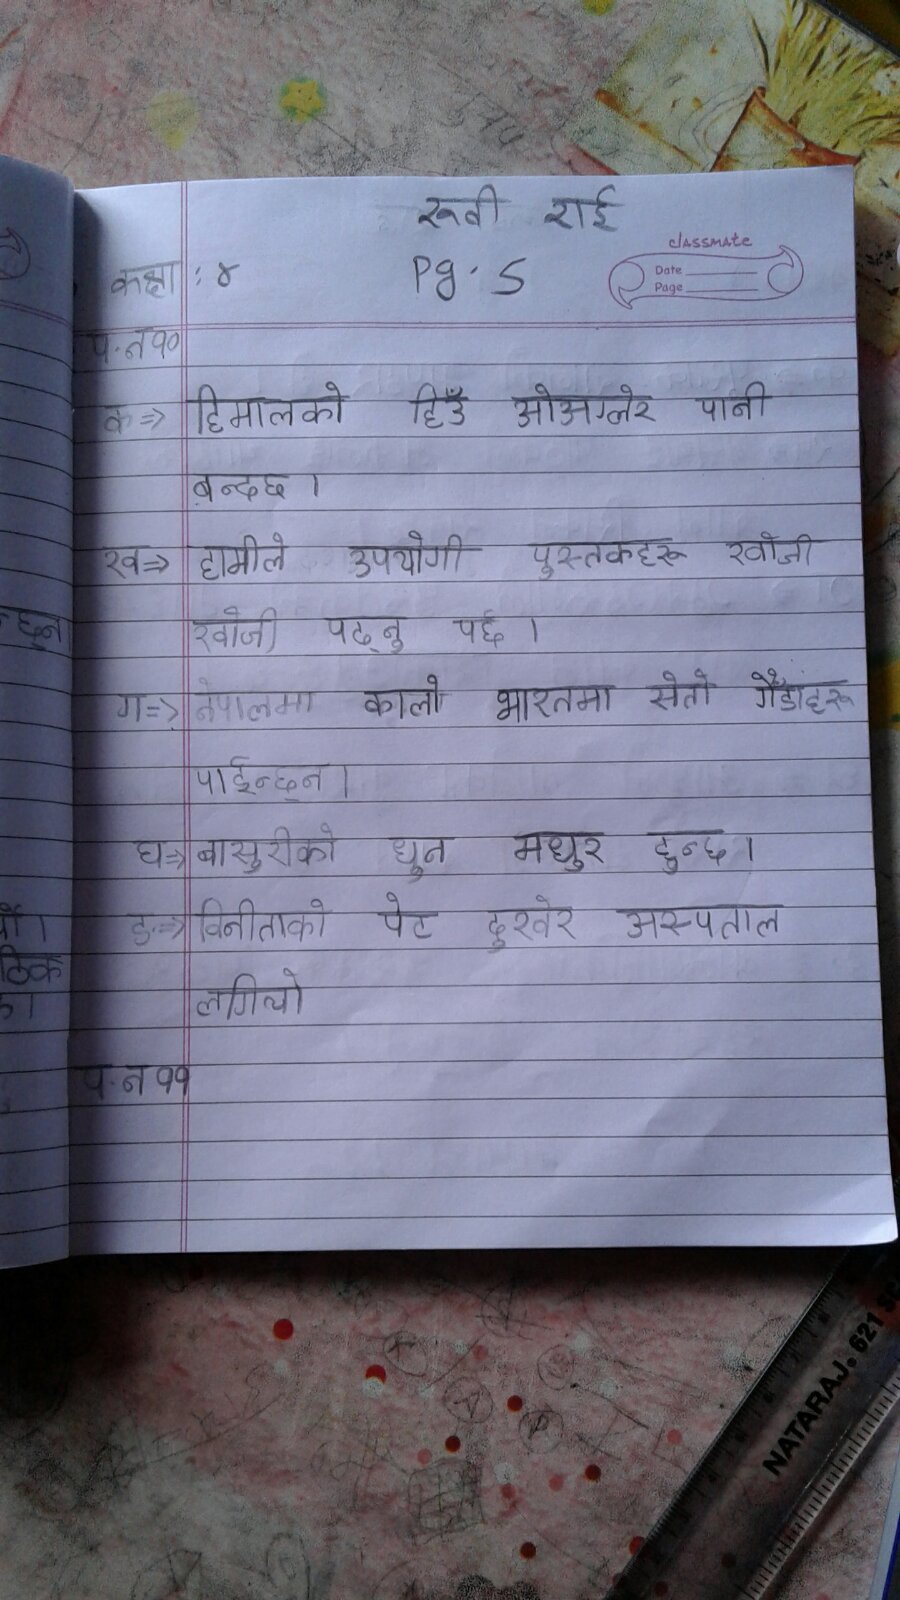 रुबी राई
classmate
कक्षा : ४ Pg. 5
Date
Page
प.न १०
क⇒ हिमालको हिउँ ओअग्लेर पानी
बन्दछ ।
ख⇒ हामीले उपयोगी पुस्तकहरू खोजी
खोजी पढ्नु पर्छ ।
छन
ग⇒ नेपालमा कालो भारतमा सेतो गैँडाहरू
पाईन्छन ।
घ⇒ बासुरीको धुन मधुर हुन्छ ।
ङ⇒ विनीताको पेट दुखेर अस्पताल
ठिक
लगियो
प.न ११
NATARAJ 621